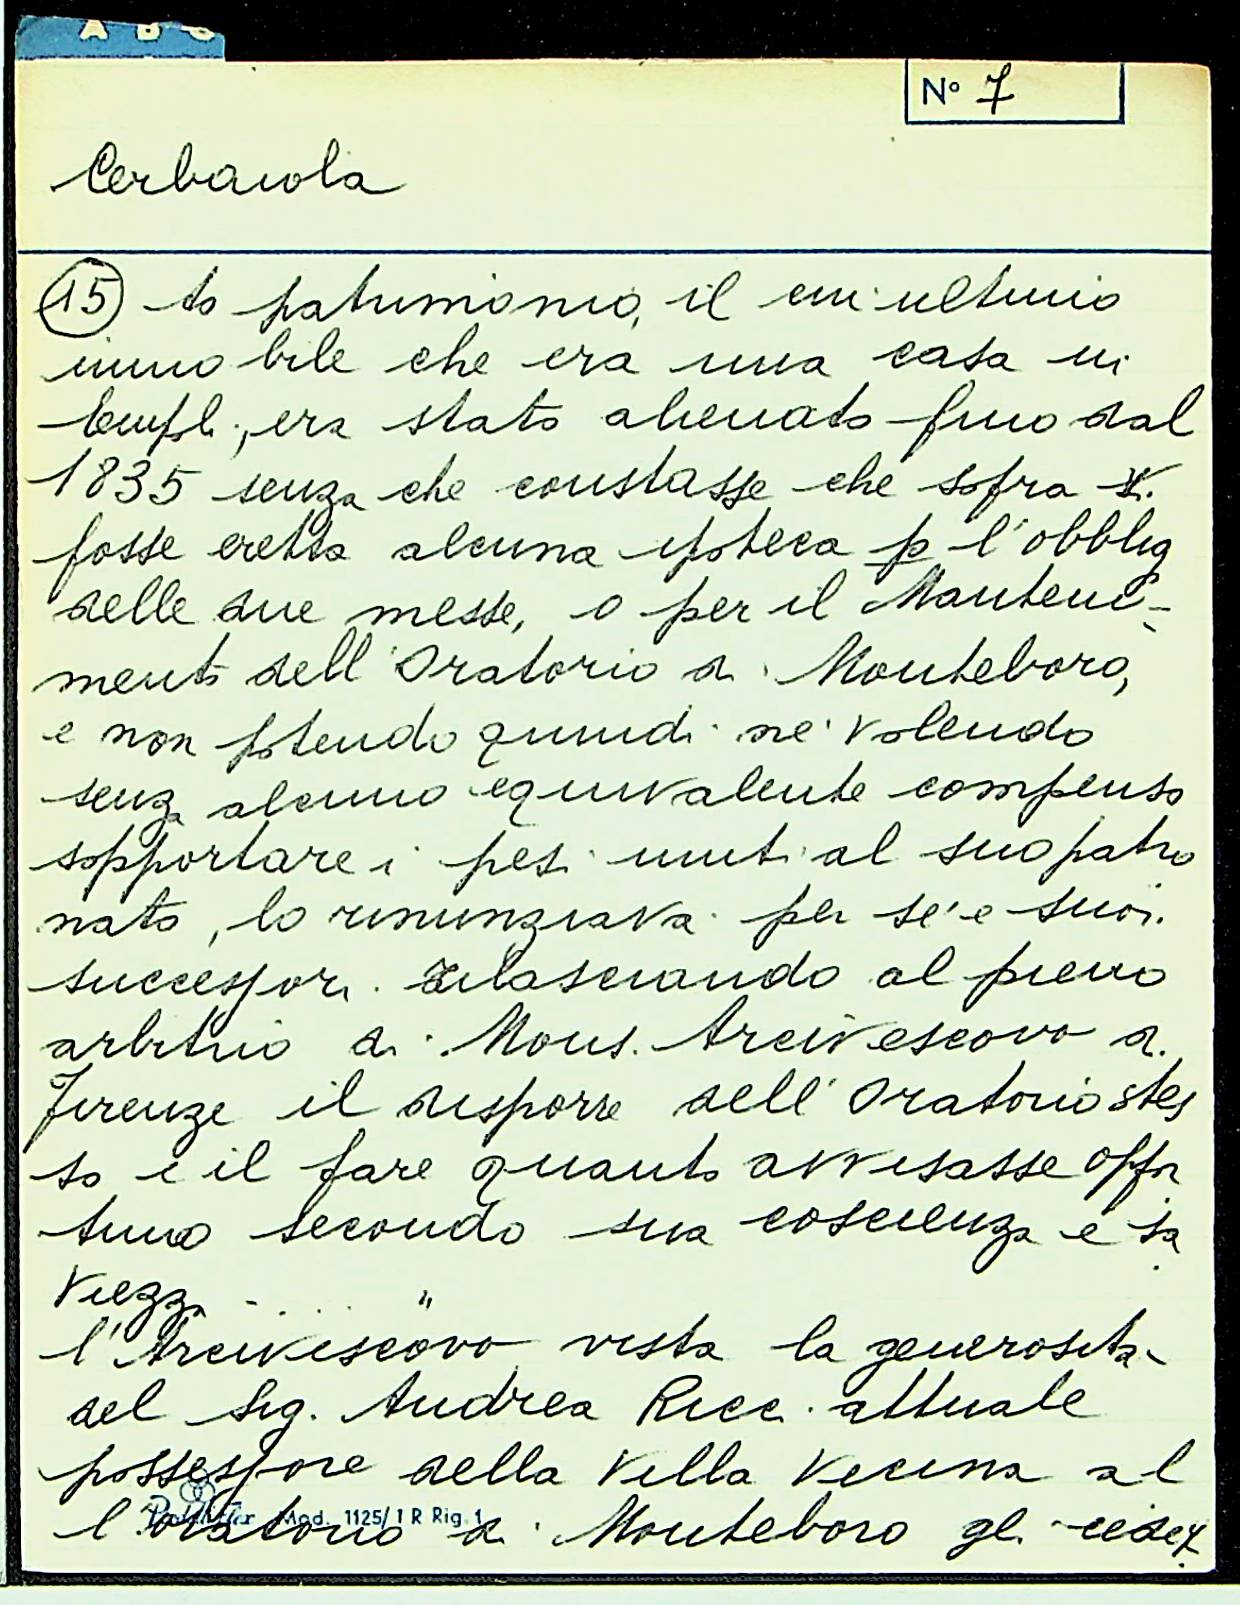 A B C
N° 7
Cerbaiola
15 to patrimonio, il cui ultimo
immobile che era una casa in
Empoli, era stato alienato fino dal
1835 senza che constasse che sopra
fosse eretta alcuna ipoteca p l'obblig
delle due messe, o per il Manteni-
mento dell'Oratorio di Monteboro,
e non potendo quindi nè volendo
senza alcuno equivalente compenso
sopportare i pesi uniti al suo patro
nato, lo rinunziava per sè e suoi
successori rilasciando al pieno
arbitrio di Mons. Arcivescovo di
Firenze il disporre dell'Oratorio stes
so e il fare quanto avvisasse oppor
tuno secondo sua coscienza e sa
viezza ..... "
l'Arcivescovo vista la generosità
del Sig. Andrea Ricci attuale
possessore della Villa Vicina al
l'Oratorio di Monteboro gli
Mod. 1125/1 R Rig. 1